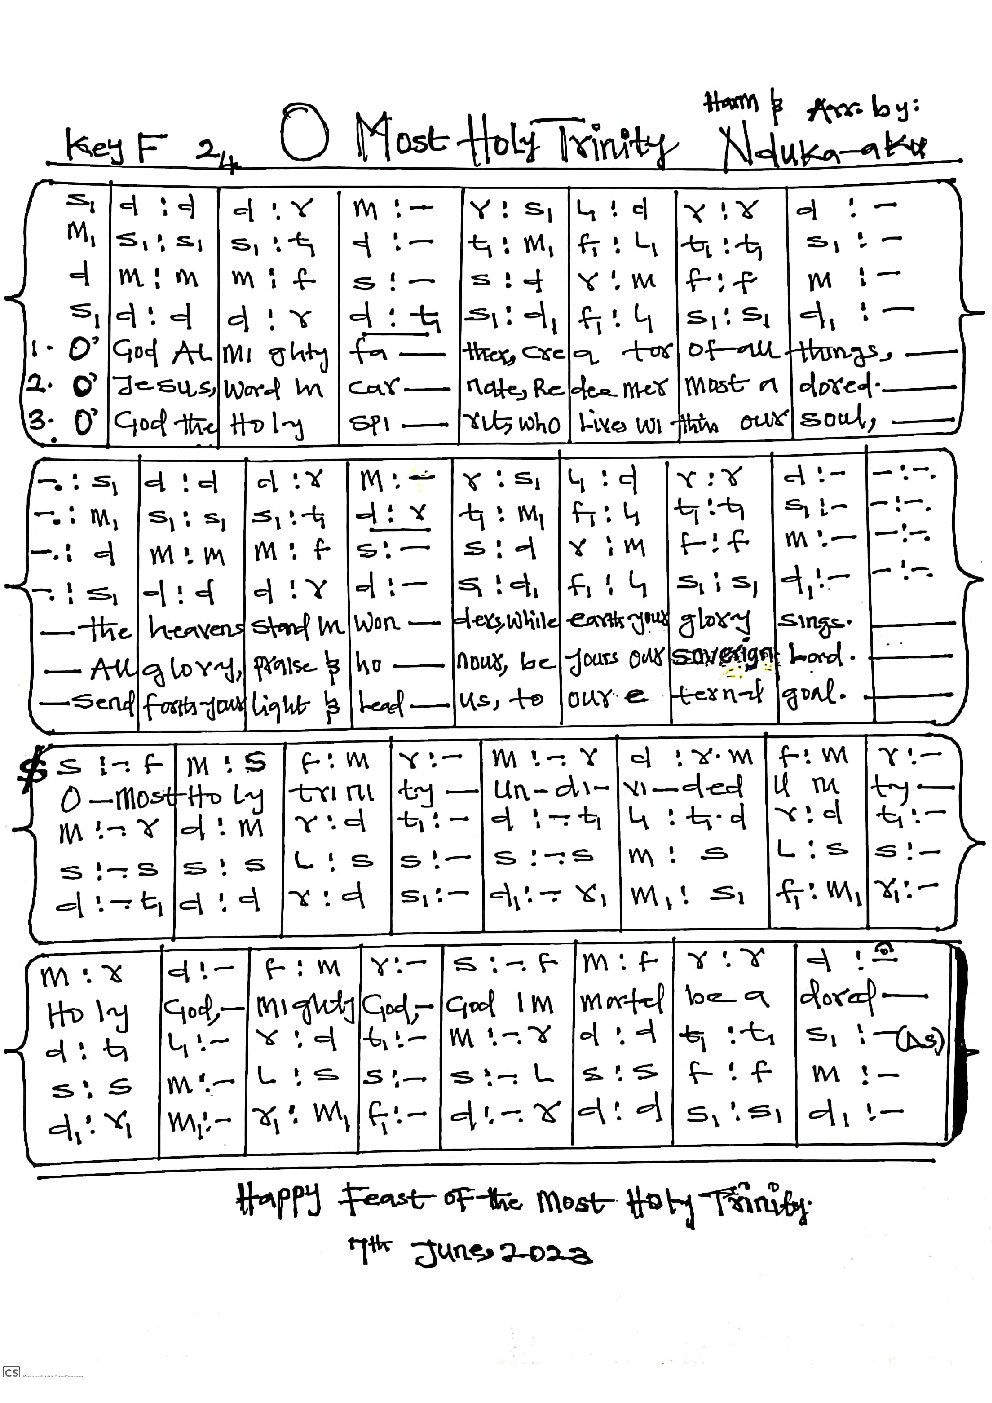 Harm & Arr. by:
Key F 2/4 O Most Holy Trinity Nduka-aku
s₁ | d : d | d : r | m : – | r : s₁ | l₁ : d | r : r | d : –
m₁ | s₁ : s₁ | s₁ : t₁ | d : – | t₁ : m₁ | f₁ : l₁ | t₁ : t₁ | s₁ : –
d | m : m | m : f | s : – | s : d | r : m | f : f | m : –
s₁ | d : d | d : r | d : t₁ | s₁ : d₁ | f₁ : l₁ | s₁ : s₁ | d₁ : –
1. O' God Al Mi ghty fa — ther, cre a tor of all things, —
2. O' Jesus, word In car — nate, Re dee mer most a dored. —
3. O' God the Holy Spi — rit, who Lives wi thin our soul, —
–. : s₁ | d : d | d : r | m : – | r : s₁ | l₁ : d | r : r | d : – | – : –.
–. : m₁ | s₁ : s₁ | s₁ : t₁ | d : r | t₁ : m₁ | f₁ : l₁ | t₁ : t₁ | s₁ : – | – : –.
–. : d | m : m | m : f | s : – | s : d | r : m | f : f | m : – | – : –.
–. : s₁ | d : d | d : r | d : – | s₁ : d₁ | f₁ : l₁ | s₁ : s₁ | d₁ : – | – : –.
— the heavens stand In won — ders, while earth your glory sings. —
— All glory, praise & ho — nour, be yours our soverign Lord. —
— Send forth your light & Lead — us, to our e ternal goal. —
$ s : –. f | m : s | f : m | r : – | m : –. r | d : r . m | f : m | r : –
O – most Ho ly tri ni ty — un – di – vi – ded u ni ty —
m : –. r | d : m | r : d | t₁ : – | d : –. t₁ | l₁ : t₁ . d | r : d | t₁ : –
s : –. s | s : s | l : s | s : – | s : –. s | m : s | l : s | s : –
d : –. t₁ | d : d | r : d | s₁ : – | d₁ : –. r₁ | m₁ : s₁ | f₁ : m₁ | r₁ : –
m : r | d : – | f : m | r : – | s : –. f | m : f | r : r | d : –
Ho ly God, – mighty God, – God Im mortal be a dored —
d : t₁ | l₁ : – | r : d | t₁ : – | m : –. r | d : d | t₁ : t₁ | s₁ : – (DS)
s : s | m : – | l : s | s : – | s : –. l | s : s | f : f | m : –
d₁ : r₁ | m₁ : – | r₁ : m₁ | f₁ : – | d : –. r | d : d | s₁ : s₁ | d₁ : –
Happy Feast of the Most Holy Trinity.
7th June, 2023
CS